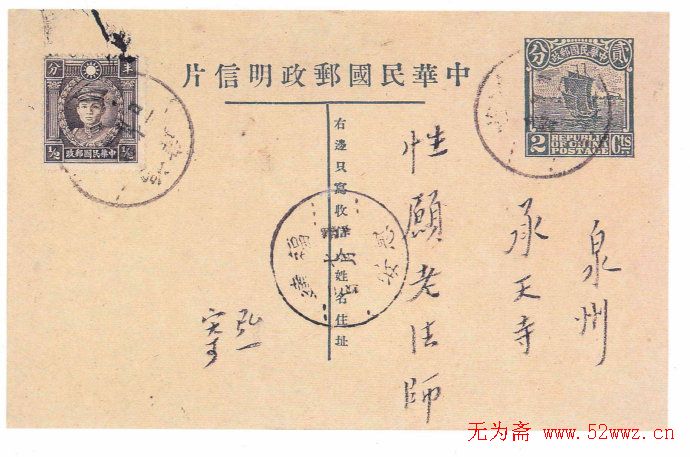 中華民國郵政明信片
貳分
中華民國郵政
2 CTS
REPUBLIC
OF CHINA
POSTAGE
半分
中華民國郵政
½ ½
泉州
承天寺
性願老法師
右邊只寫收件人姓名住址
惠安
福建
弘一
寄
无为斋 www.52wwz.cn